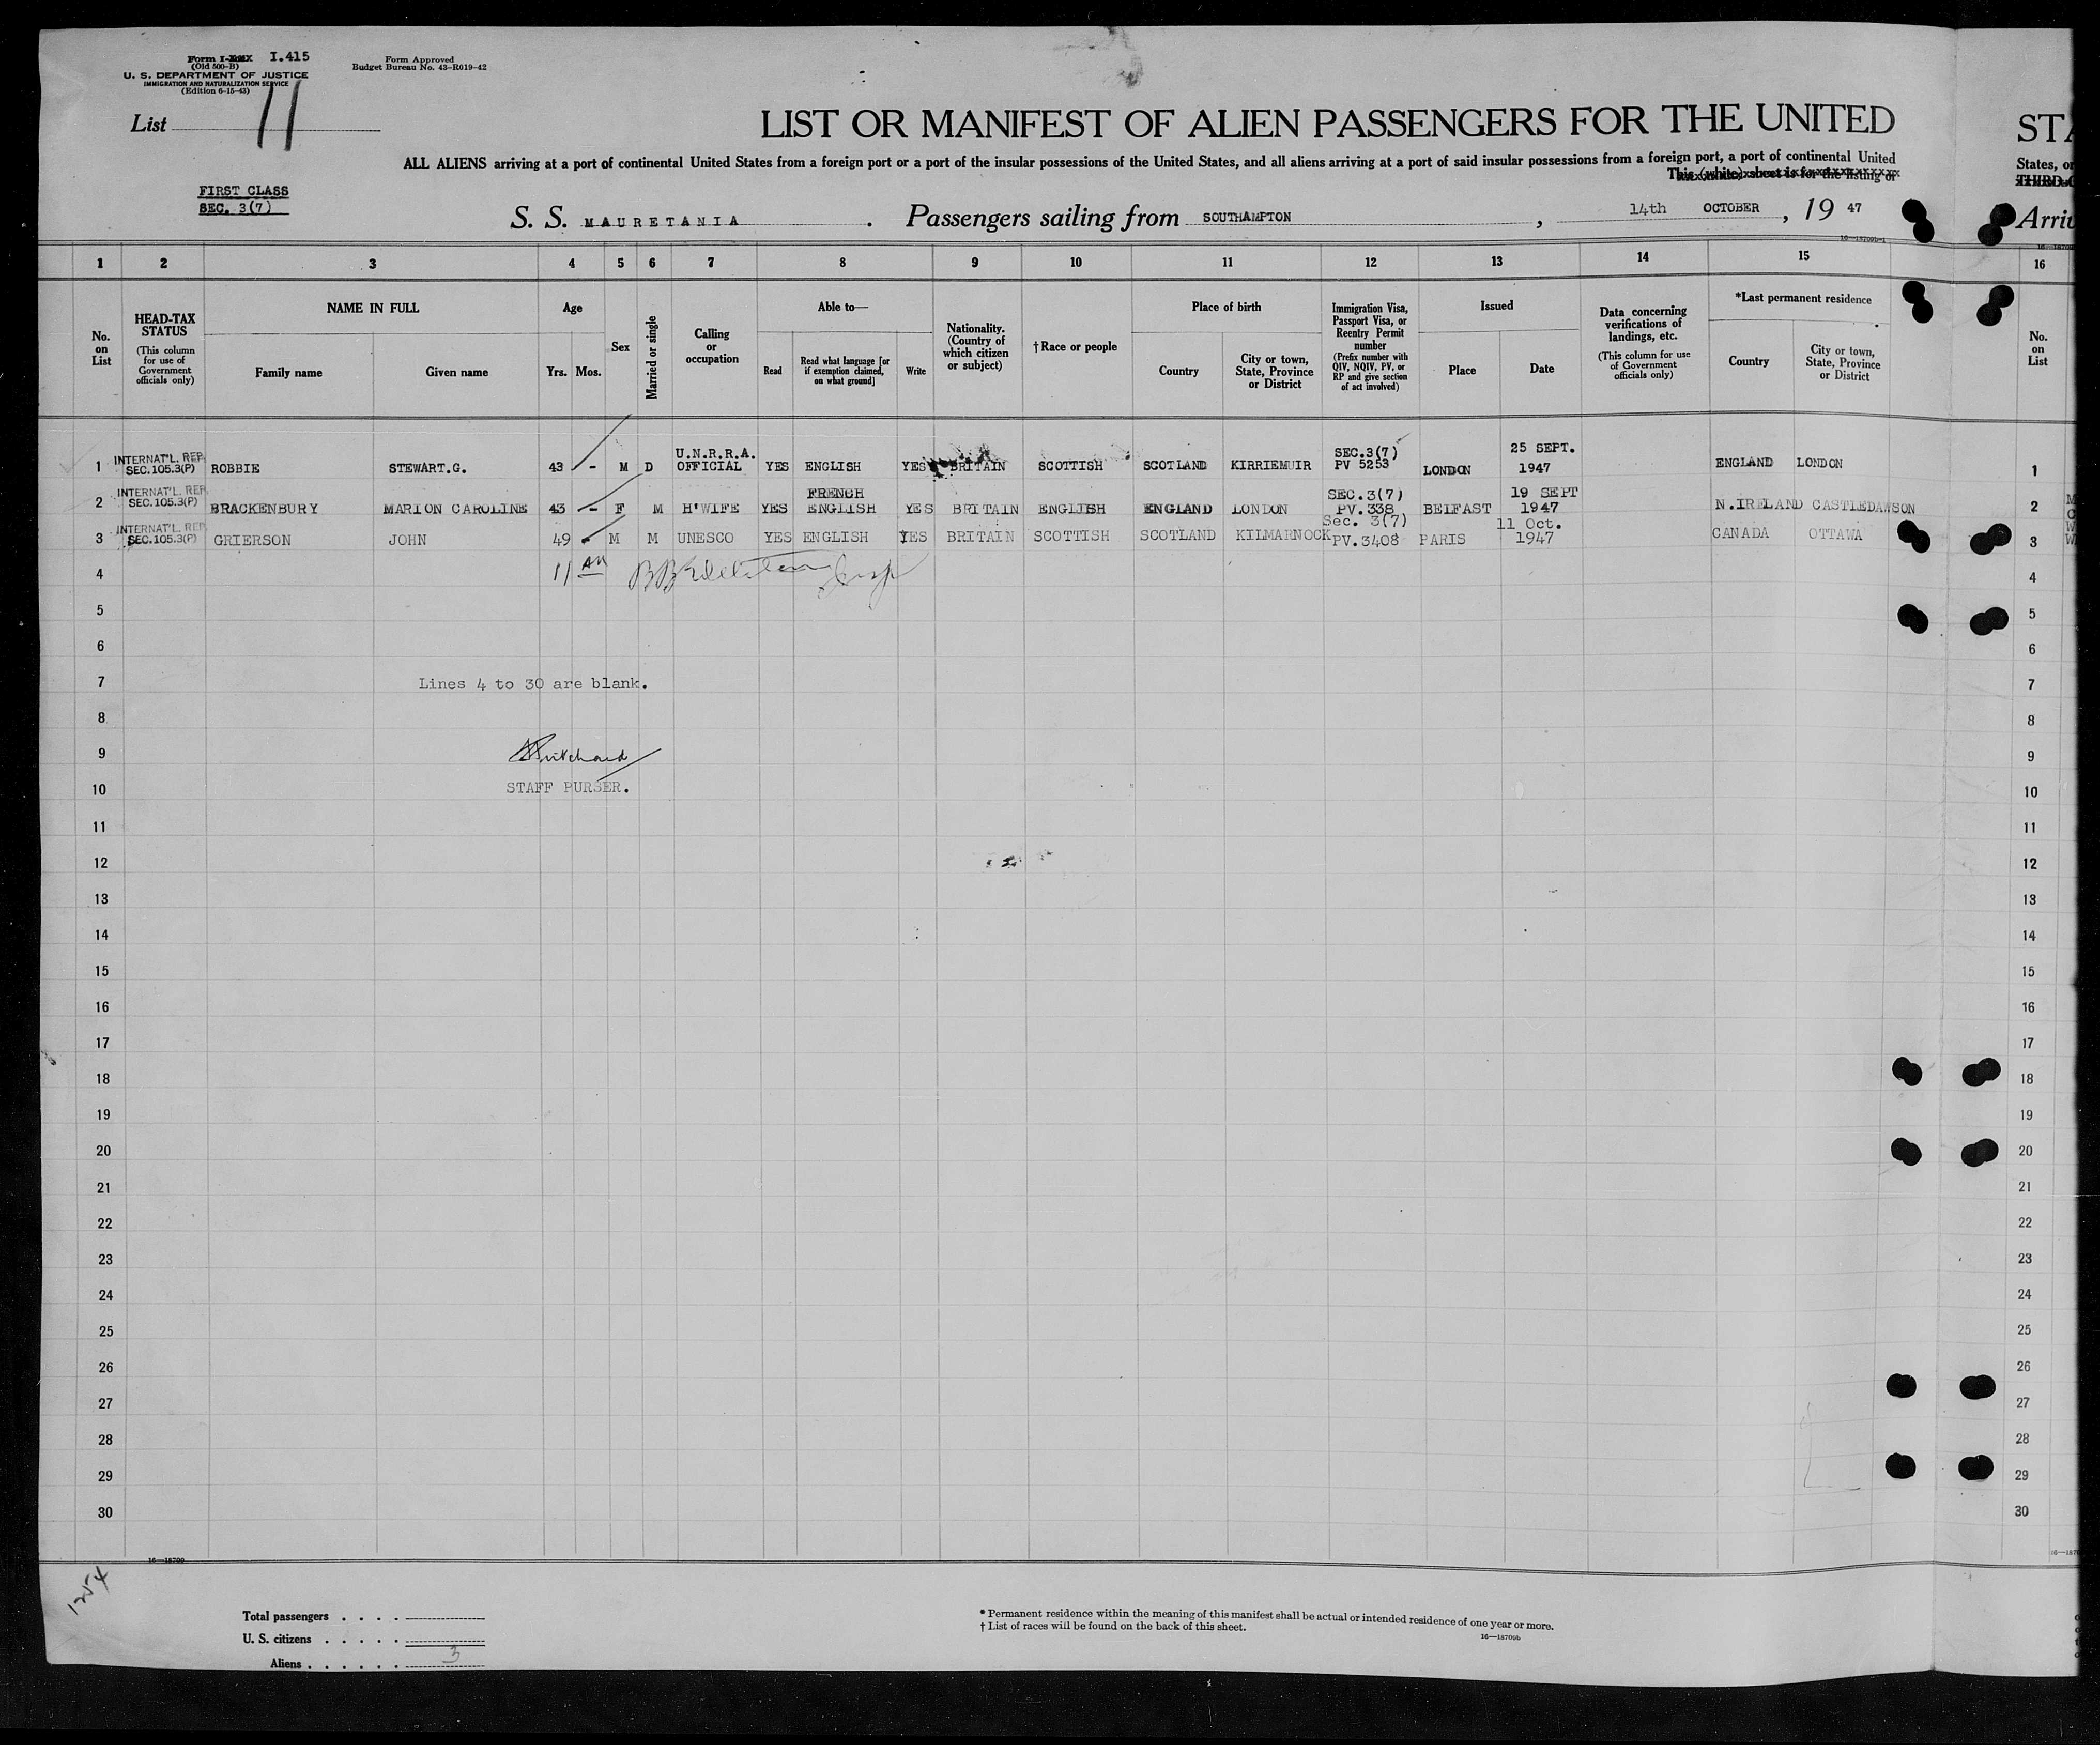 Form I- I.415
(Old 500-B)
U. S. DEPARTMENT OF JUSTICE
IMMIGRATION AND NATURALIZATION SERVICE
(Edition 6-15-43)
Form Approved
Budget Bureau No. 43-R019-42
List 11
LIST OR MANIFEST OF ALIEN PASSENGERS FOR THE UNITED
STA
ALL ALIENS arriving at a port of continental United States from a foreign port or a port of the insular possessions of the United States, and all aliens arriving at a port of said insular possessions from a foreign port, a port of continental United
States, or
This (white) sheet is for the listing of
FIRST CLASS
SEC. 3(7)
S. S. MAURETANIA . Passengers sailing from SOUTHAMPTON , 14th OCTOBER , 19 47
16—18709b-1
1 2 3 4 5 6 7 8 9 10 11 12 13 14 15 16
No. on List
HEAD-TAX STATUS
(This column for use of Government officials only)
NAME IN FULL
Family name Given name
Age
Yrs. Mos.
Sex
Married or single
Calling or occupation
Able to—
Read
Read what language [or if exemption claimed, on what ground]
Write
Nationality. (Country of which citizen or subject)
†Race or people
Place of birth
Country
City or town, State, Province or District
Immigration Visa, Passport Visa, or Reentry Permit number
(Prefix number with QIV, NQIV, PV, or RP and give section of act involved)
Issued
Place Date
Data concerning verifications of landings, etc.
(This column for use of Government officials only)
*Last permanent residence
Country
City or town, State, Province or District
No. on List
1 INTERNAT'L. REP. SEC.105.3(P) ROBBIE STEWART.G. 43 - M D U.N.R.R.A. OFFICIAL YES ENGLISH YES BRITAIN SCOTTISH SCOTLAND KIRRIEMUIR SEC.3(7) PV 5253 LONDON 25 SEPT. 1947 ENGLAND LONDON 1
2 INTERNAT'L. REP. SEC.105.3(P) BRACKENBURY MARION CAROLINE 43 - F M H'WIFE YES FRENCH ENGLISH YES BRITAIN ENGLISH ENGLAND LONDON SEC.3(7) PV.338 BELFAST 19 SEPT 1947 N.IRELAND CASTLEDAWSON 2
3 INTERNAT'L. REP. SEC.105.3(P) GRIERSON JOHN 49 M M UNESCO YES ENGLISH YES BRITAIN SCOTTISH SCOTLAND KILMARNOCK Sec. 3(7) PV.3408 PARIS 11 Oct. 1947 CANADA OTTAWA 3
4 11 AM 4
5 5
6 6
7 Lines 4 to 30 are blank. 7
8 8
9 Pritchard 9
10 STAFF PURSER. 10
11 11
12 12
13 13
14 14
15 15
16 16
17 17
18 18
19 19
20 20
21 21
22 22
23 23
24 24
25 25
26 26
27 27
28 28
29 29
30 30
16—18709
Total passengers . . . .
U. S. citizens . . . . .
Aliens . . . . . . 3
* Permanent residence within the meaning of this manifest shall be actual or intended residence of one year or more.
† List of races will be found on the back of this sheet.
16—18709b